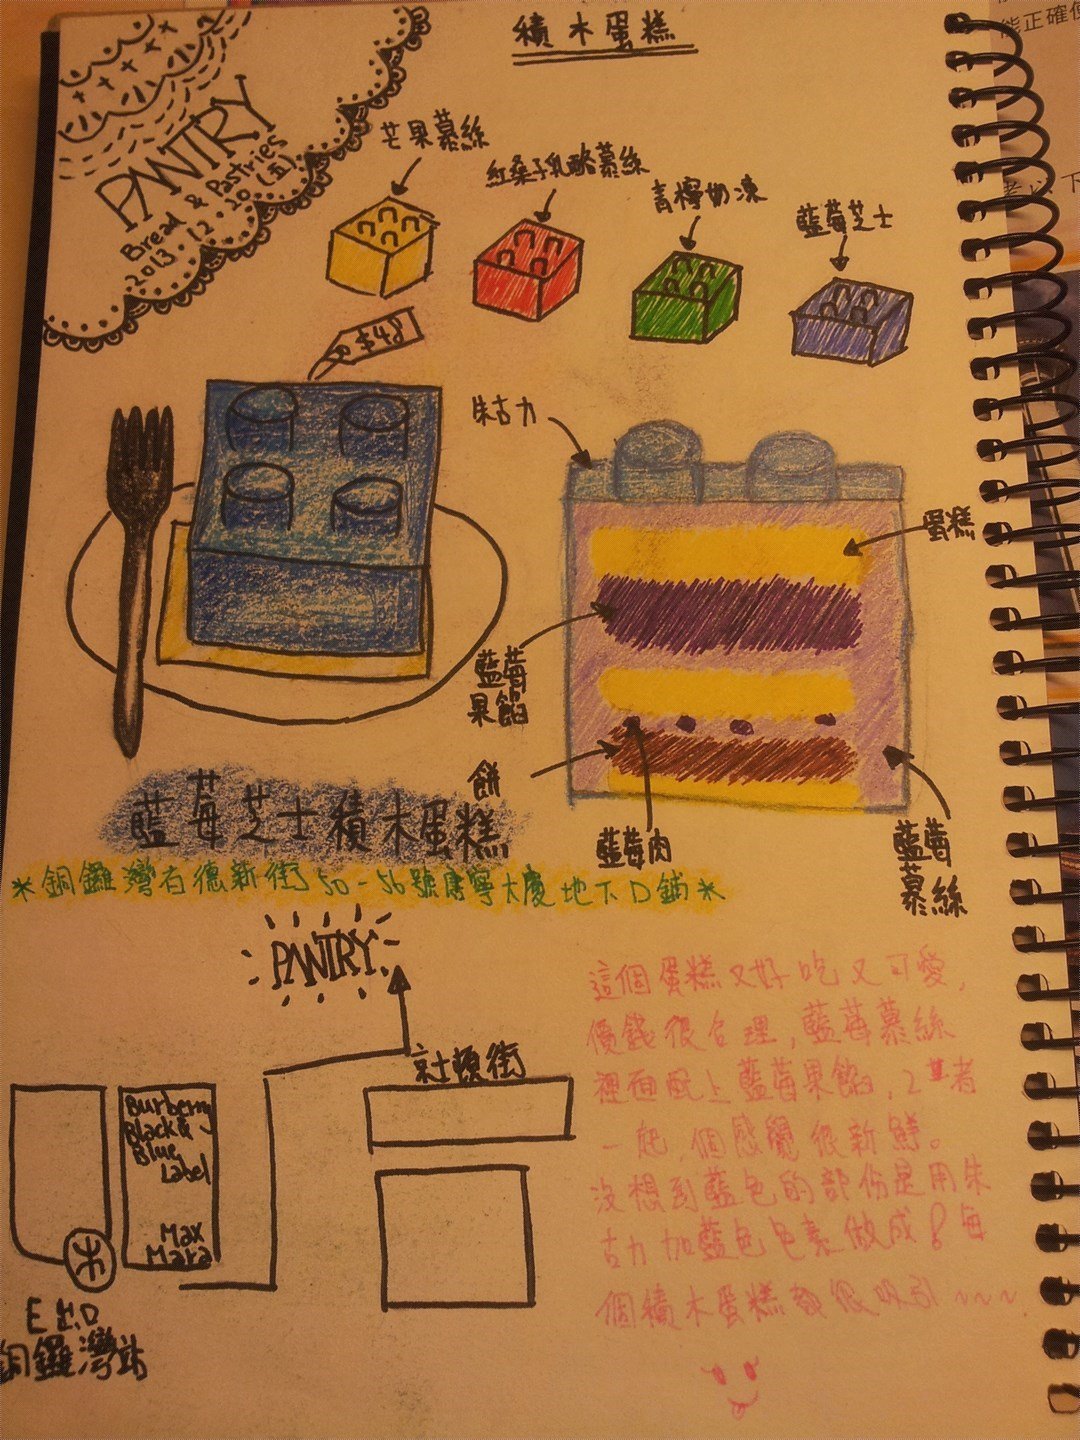 積木蛋糕
PANTRY
Bread & Pastries
2013.12.20 (五)
芒果慕絲
紅桑子乳酪慕絲
青檸奶凍
藍莓芝士
$48
朱古力
蛋糕
藍莓
果餡
餅
藍莓肉
藍莓
慕絲
藍莓芝士積木蛋糕
*銅鑼灣百德新街50-56號康寧大廈地下D鋪*
PANTRY
京士頓街
Burberry
Black &
Blue
Label
Max
Mara
E出口
銅鑼灣站
這個蛋糕又好吃又可愛,
價錢很合理,藍莓慕絲
裡面配上藍莓果餡,2者
一起,個感覺很新鮮。
沒想到藍色的部份是用朱
古力加藍色色素做成!每
個積木蛋糕都很吸引~~~
能正確使